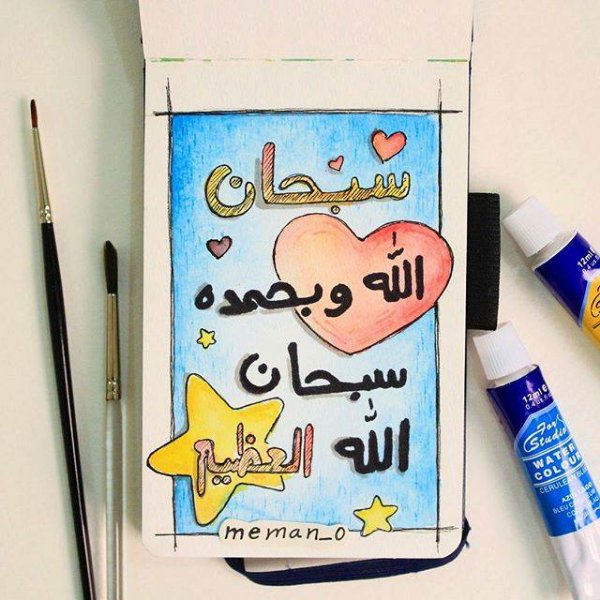 سبحان
الله وبحمده
سبحان
الله العظيم
meman_o
12ml e
For
Studio
WATER
COLOUR
CERULEAN BL
12ml